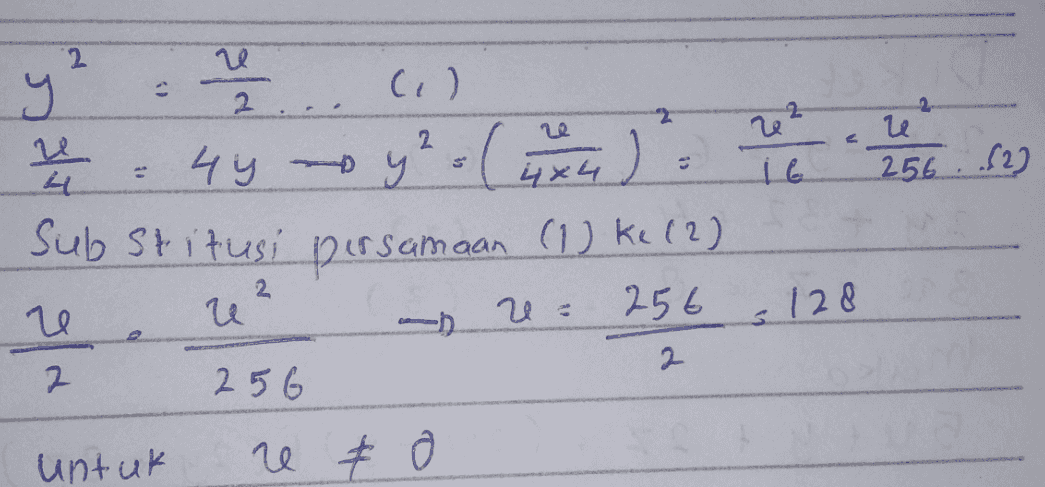 y² = x/2 ... (1)
x/4 = 4y → y² = (x/4×4)² = x²/16 = x²/256 ..(2)
Substitusi persamaan (1) ke (2)
x/2 = x²/256 → x = 256/2 = 128
untuk x ≠ 0